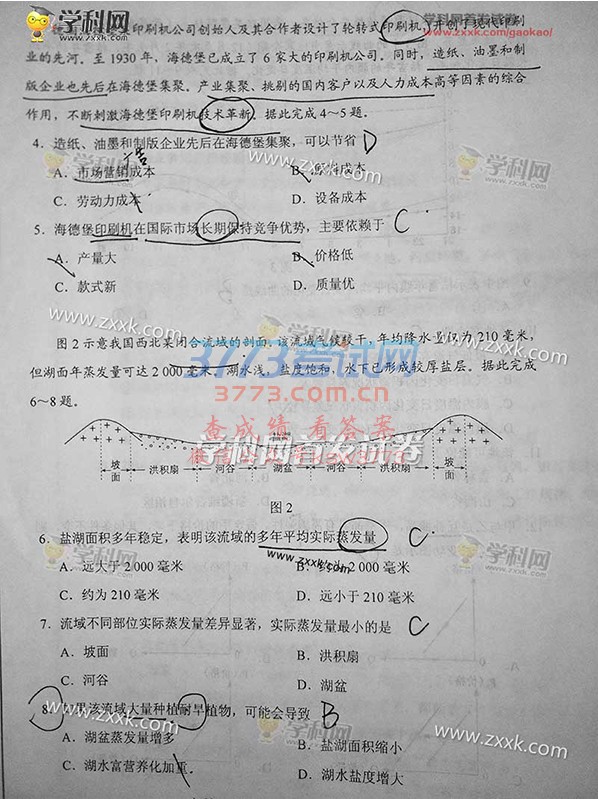 学科网 学科网首发试卷
www.zxxk.com/gaokao/
印刷机公司创始人及其合作者设计了轮转式印刷机,开创了现代印刷
业的先河。至 1930 年,海德堡已成立了 6 家大的印刷公司。同时,造纸、油墨和制
版企业也先后在海德堡集聚。产业集聚、挑剔的国内客户以及人力成本高等因素的综合
作用,不断刺激海德堡印刷机技术革新。据此完成 4~5 题。
4. 造纸、油墨和制版企业先后在海德堡集聚,可以节省 D
A. 市场营销成本
B. 原料成本
C. 劳动力成本
D. 设备成本
5. 海德堡印刷机在国际市场长期保持竞争优势,主要依赖于 C
A. 产量大
B. 价格低
C. 款式新
D. 质量优
图 2 示意我国西北某闭合流域的剖面。该流域气候较干,年均降水量仅为 210 毫米,
但湖面年蒸发量可达 2 000 毫米,湖水浅,盐度饱和,水下已形成较厚盐层。据此完成
6~8 题。
3773考试网
3773.com.cn
查成绩 看答案
学科网首发试卷
坡面 洪积扇 河谷 湖盆 河谷 洪积扇 坡面
图 2
6. 盐湖面积多年稳定,表明该流域的多年平均实际蒸发量 C
A. 远大于 2 000 毫米
B. 约为 2 000 毫米
C. 约为 210 毫米
D. 远小于 210 毫米
7. 流域不同部位实际蒸发量差异显著,实际蒸发量最小的是 C
A. 坡面
B. 洪积扇
C. 河谷
D. 湖盆
8. 如果该流域大量种植耐旱植物,可能会导致 B
A. 湖盆蒸发量增多
B. 盐湖面积缩小
C. 湖水富营养化加重
D. 湖水盐度增大
学科网
www.zxxk.com